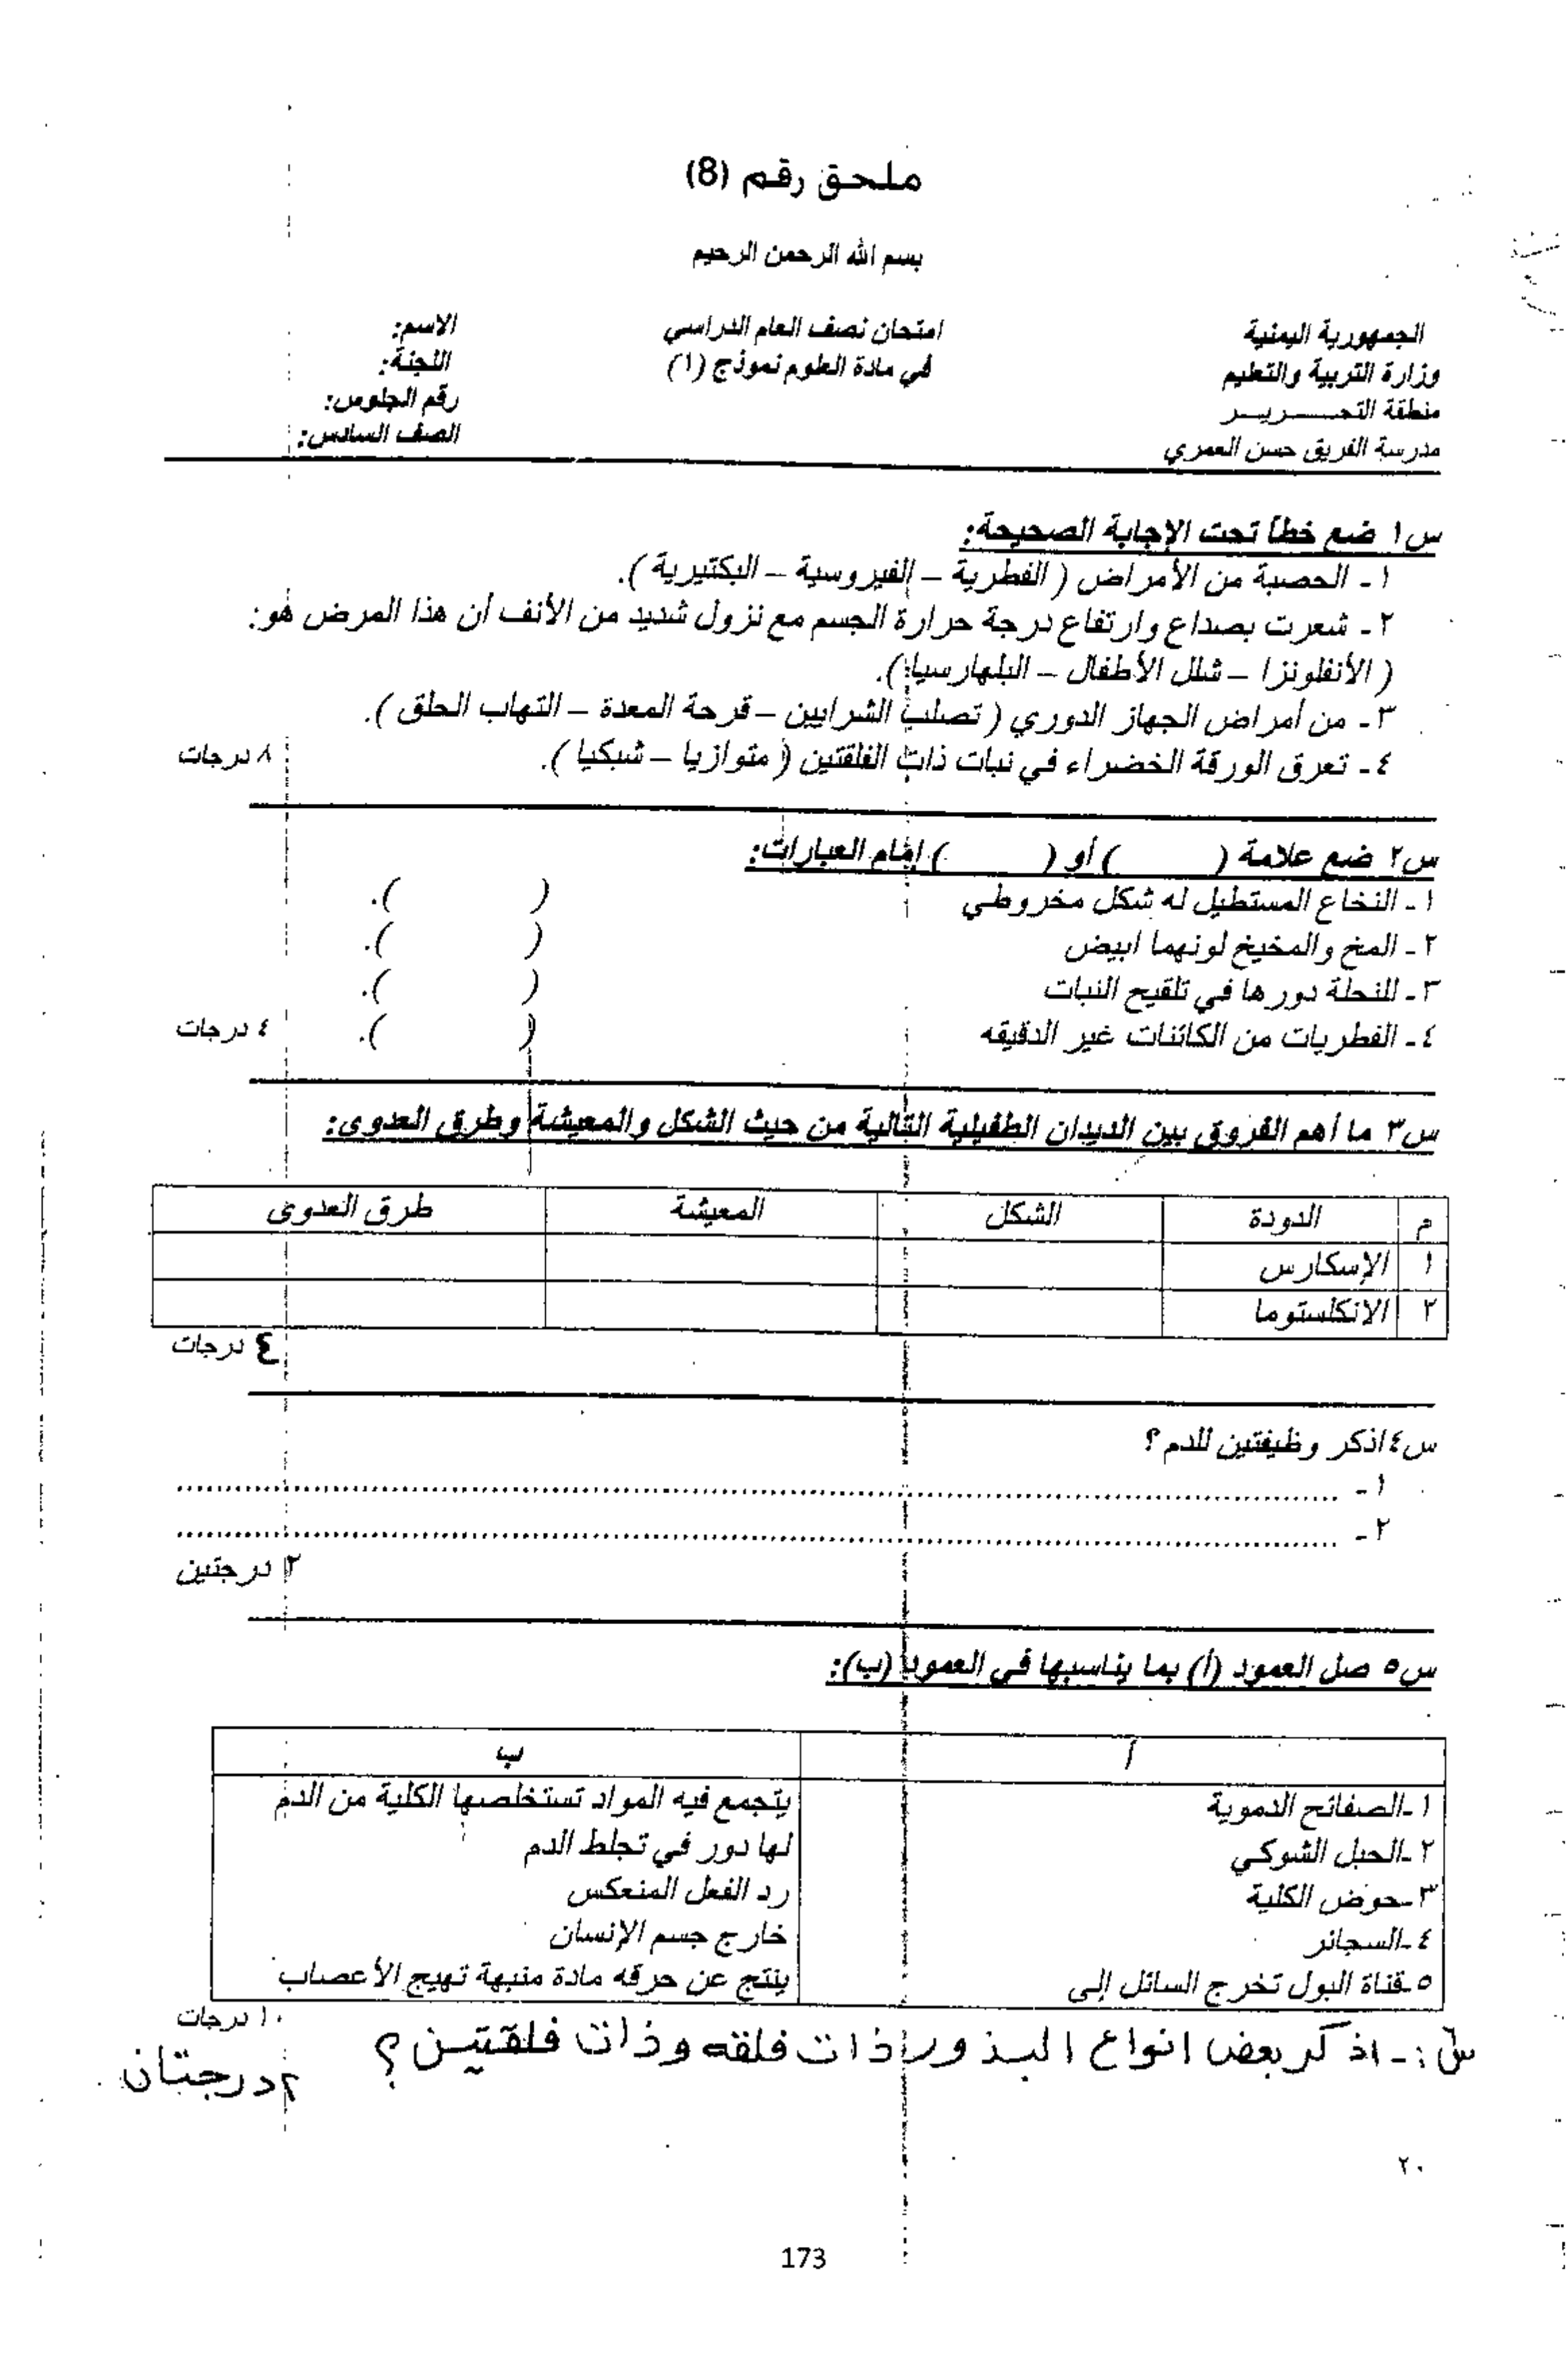 ملحق رقم (8)
بسم الله الرحمن الرحيم
الجمهورية اليمنية
وزارة التربية والتعليم
منطقة التحـــــــريـــر
مدرسة الفريق حسن العمري
امتحان نصف العام الدراسي
في مادة العلوم نموذج (١)
الاسم:
اللجنة:
رقم الجلوس:
الصف السادس:
س١ ضع خطاً تحت الإجابة الصحيحة:
١- الحصبة من الأمراض ( الفطرية – الفيروسية – البكتيرية ).
٢- شعرت بصداع وارتفاع درجة حرارة الجسم مع نزول شديد من الأنف أن هذا المرض هو:
( الأنفلونزا – شلل الأطفال – البلهارسيا ).
٣- من أمراض الجهاز الدوري ( تصلب الشرايين – قرحة المعدة – التهاب الحلق ).
٤- تعرق الورقة الخضراء في نبات ذات الفلقتين ( متوازيا – شبكيا ).
٨ درجات
س٢ ضع علامة (        ) أو (        ) إمام العبارات:
١- النخاع المستطيل له شكل مخروطي (        ).
٢- المخ والمخيخ لونهما ابيض (        ).
٣- للنحلة دورها في تلقيح النبات (        ).
٤- الفطريات من الكائنات غير الدقيقه (        ).
٤ درجات
س٣ ما أهم الفروق بين الديدان الطفيلية التالية من حيث الشكل والمعيشة وطرق العدوى:
م الدودة الشكل المعيشة طرق العدوى
١ الإسكارس
٢ الانكلستوما
٤ درجات
س٤ اذكر وظيفتين للدم ؟
١- ................................................
٢- ................................................
٢ درجتين
س٥ صل العمود (أ) بما يناسبها في العمود (ب):
أ ب
١-الصفائح الدموية يتجمع فيه المواد تستخلصها الكلية من الدم
٢-الحبل الشوكي لها دور في تجلط الدم
٣-حوض الكلية رد الفعل المنعكس
٤-السجائر خارج جسم الإنسان
٥-قناة البول تخرج السائل إلى ينتج عن حرقه مادة منبهة تهيج الأعصاب
١٠ درجات
س٦:- اذكر بعض انواع البذور ذات فلقه وذات فلقتين ؟
٢ درجتان
٢٠
173